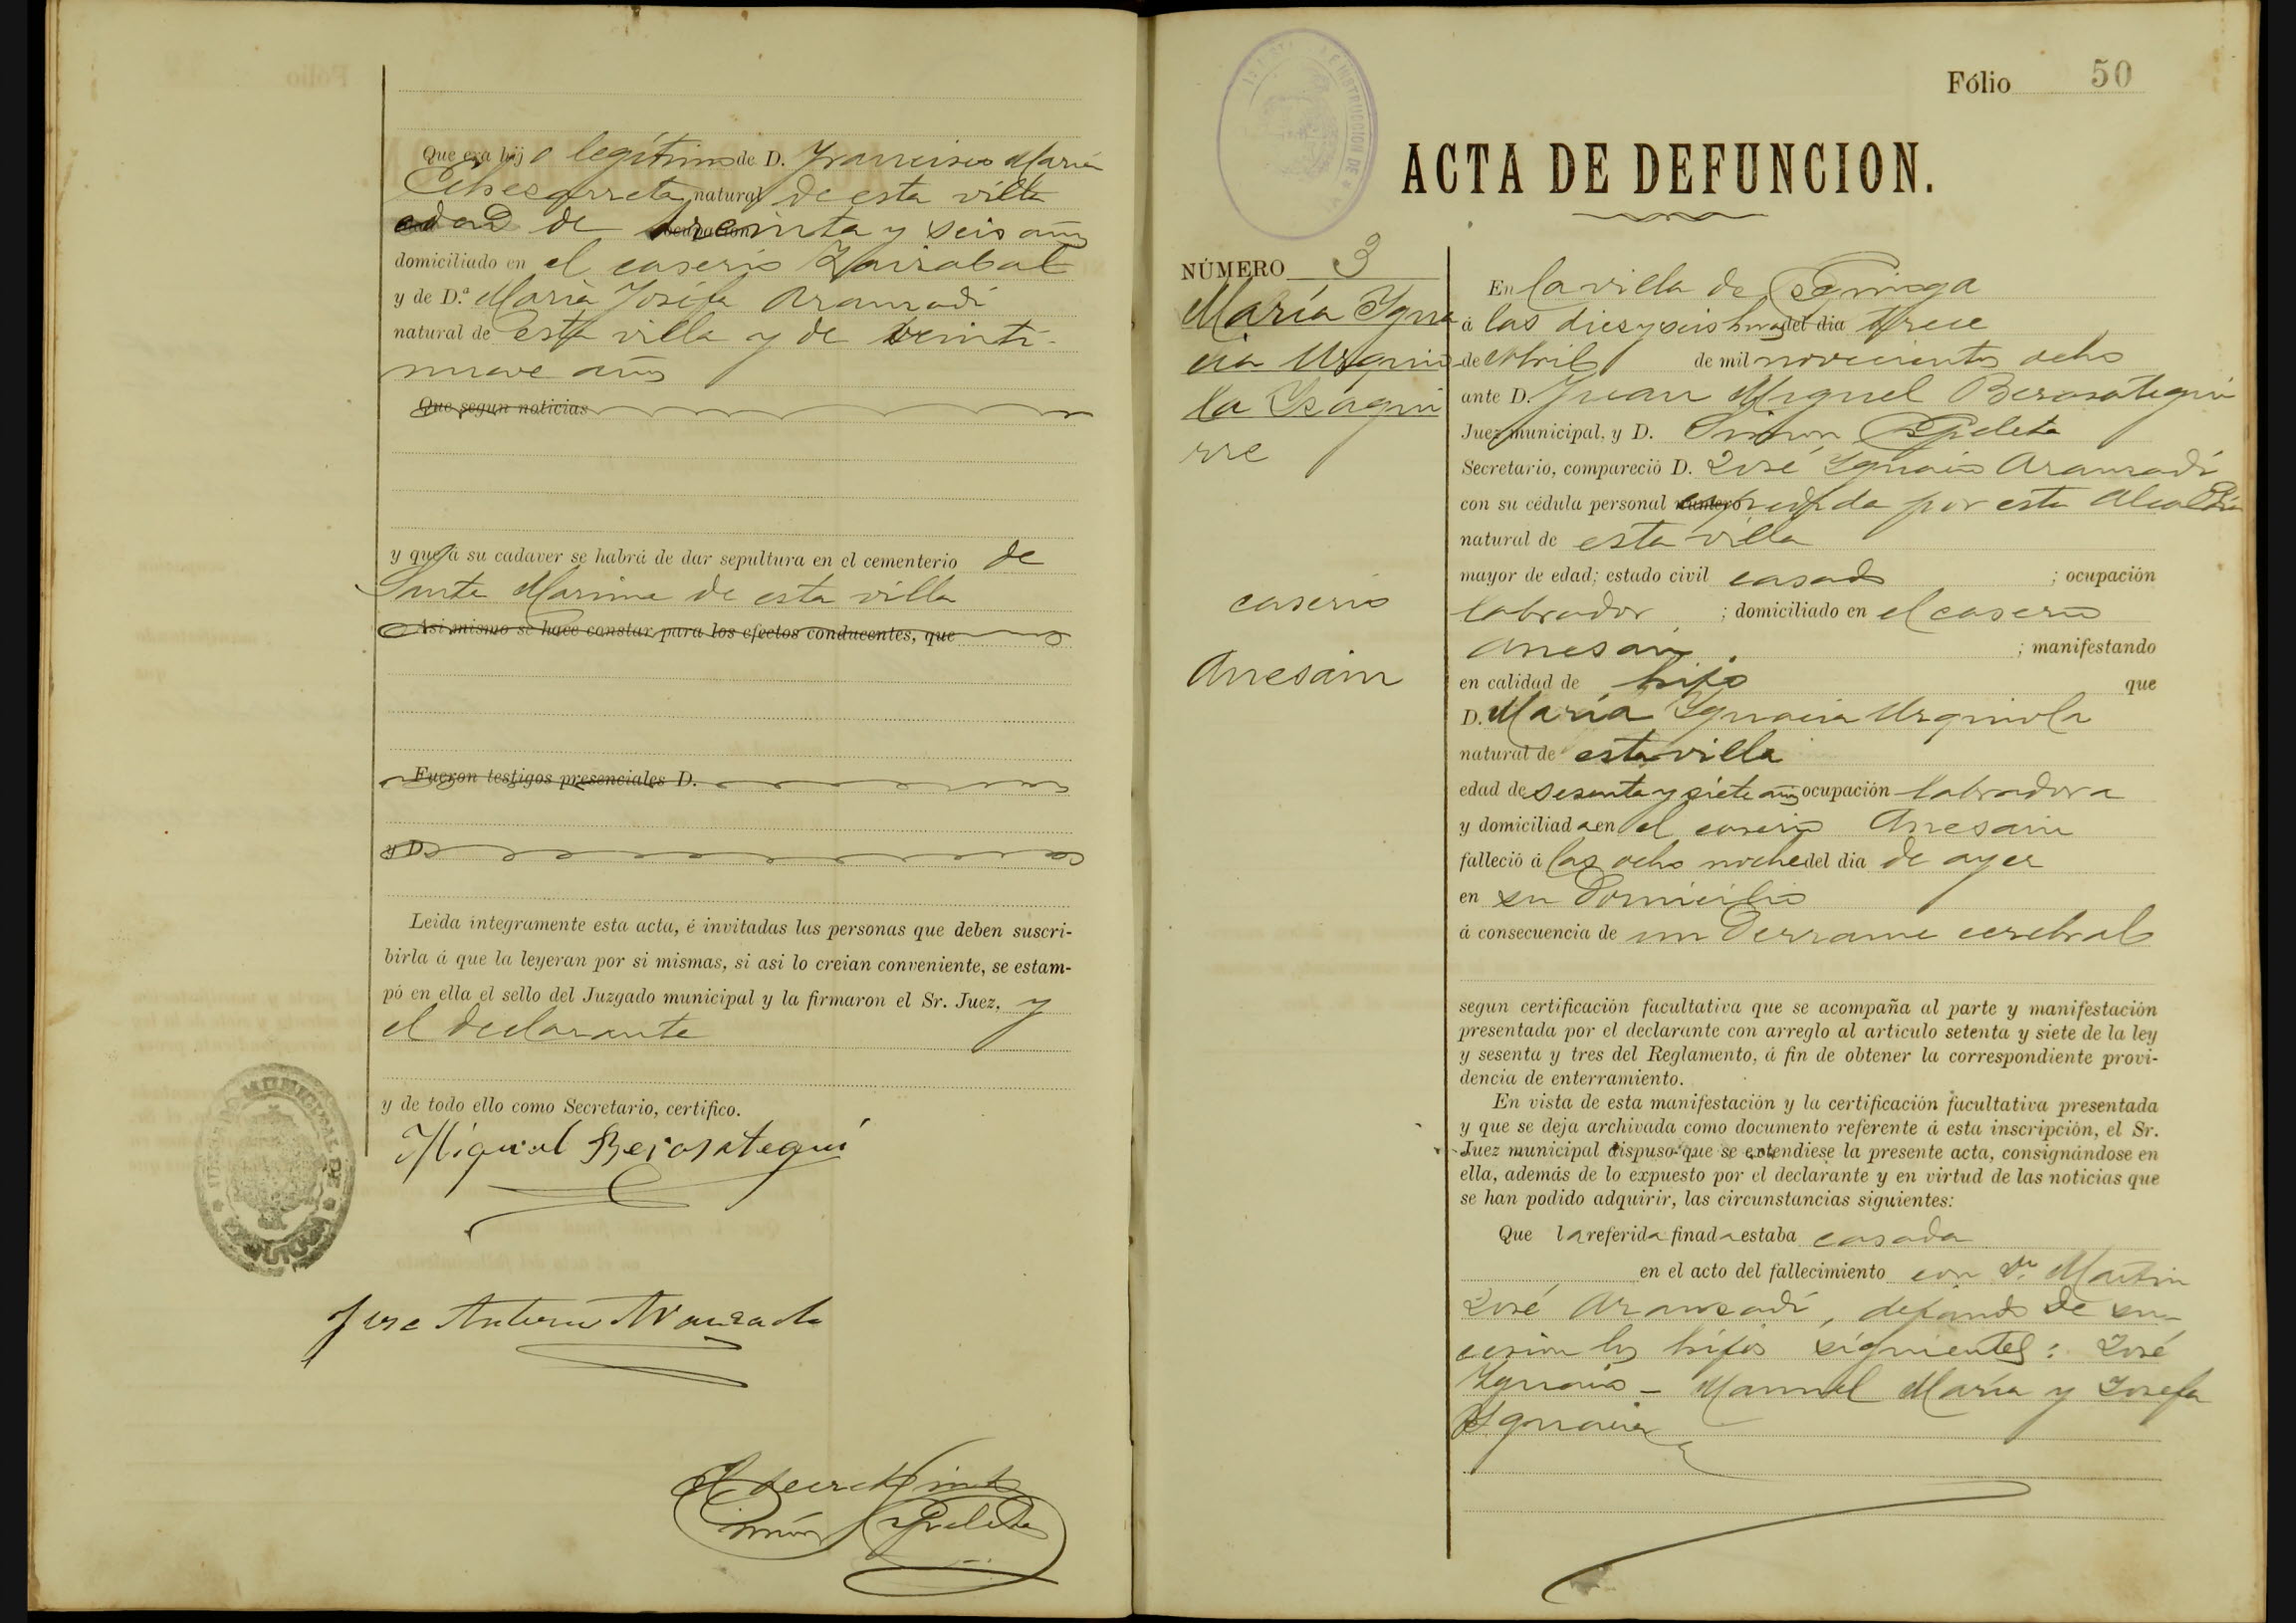 Que era hijo legítimo de D. Francisco María
Echezarreta, natural de esta villa
edad de treinta y seis años
domiciliado en el caserío
y de D.ª María Josefa Aranzadi
natural de esta villa y de veinti-
nueve años
Que segun noticias
y que á su cadaver se habrá de dar sepultura en el cementerio de
Santa Marina de esta villa
Asi mismo se hace constar para los efectos conducentes, que
Fueron testigos presenciales D.
y D.
Leida integramente esta acta, é invitadas las personas que deben suscri-
birla á que la leyeran por si mismas, si asi lo creian conveniente, se estam-
pó en ella el sello del Juzgado municipal y la firmaron el Sr. Juez, y
el declarante
y de todo ello como Secretario, certifico.
Miguel Berasategui
Jose Antonio
Simón Ezpeleta
Fólio 50
ACTA DE DEFUNCION.
NÚMERO 3
María Igna
cia Urquio
la Ysagui
rre
caserío
Anesáin
En la villa de
á las diez y seis horas del dia trece
de Abril de mil novecientos ocho
ante D. Juan Miguel Berasategui
Juez municipal, y D. Simon Ezpeleta
Secretario, compareció D. José Ygnacio Aranzadi
con su cédula personal número expedida por esta Alcaldía
natural de esta villa
mayor de edad; estado civil casado ; ocupación
labrador ; domiciliado en el caserío
Anesáin ; manifestando
en calidad de hijo que
D. María Ygnacia Urquiola
natural de esta villa
edad de sesenta y siete años ocupación labradora
y domiciliada en el caserío Anesáin
falleció á las ocho noche del dia de ayer
en su domicilio
á consecuencia de un derrame cerebral
segun certificación facultativa que se acompaña al parte y manifestación
presentada por el declarante con arreglo al artículo setenta y siete de la ley
y sesenta y tres del Reglamento, á fin de obtener la correspondiente provi-
dencia de enterramiento.
En vista de esta manifestación y la certificación facultativa presentada
y que se deja archivada como documento referente á esta inscripción, el Sr.
Juez municipal dispuso que se extendiese la presente acta, consignándose en
ella, además de lo expuesto por el declarante y en virtud de las noticias que
se han podido adquirir, las circunstancias siguientes:
Que la referida finada estaba casada
en el acto del fallecimiento con Dn. Martin
José Aranzadi, dejando de su-
cesion los hijos siguientes: José
Ygnacio - Manuel María y Josefa
Ygnacia